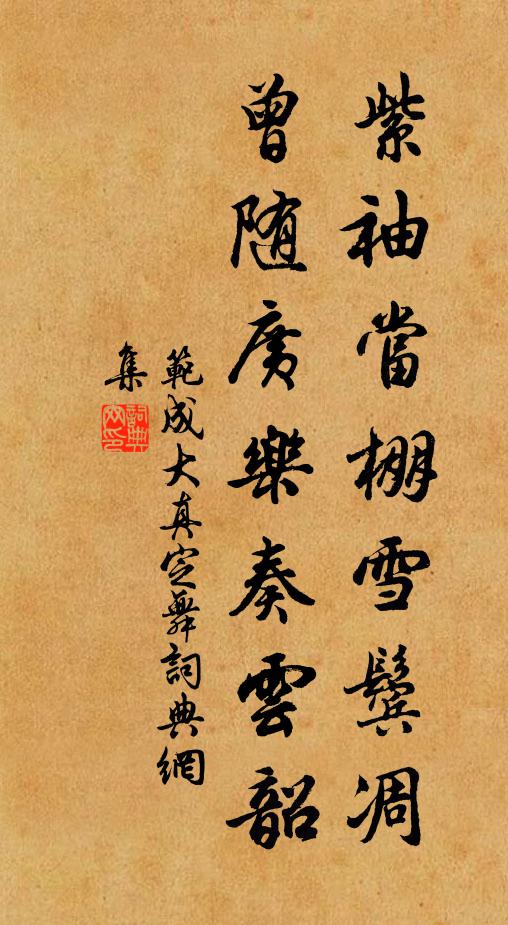 紫袖當棚雪鬓凋
曾随廣樂奏雲韶
範成大真定舞詞典網
集
詞典網印